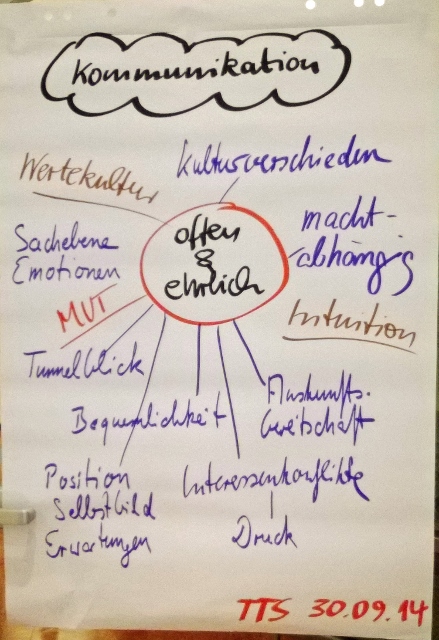 Kommunikation
Wertekultur
Kulturverschieden
offen
&
ehrlich
macht-
abhängig
Sachebene
Emotionen
MUT
Intuition
Tunnelblick
Bequemlichkeit
Auskunfts-
bereitschaft
Position
Selbstbild
Erwartungen
Interessenkonflikte
Druck
TTS 30.09.14